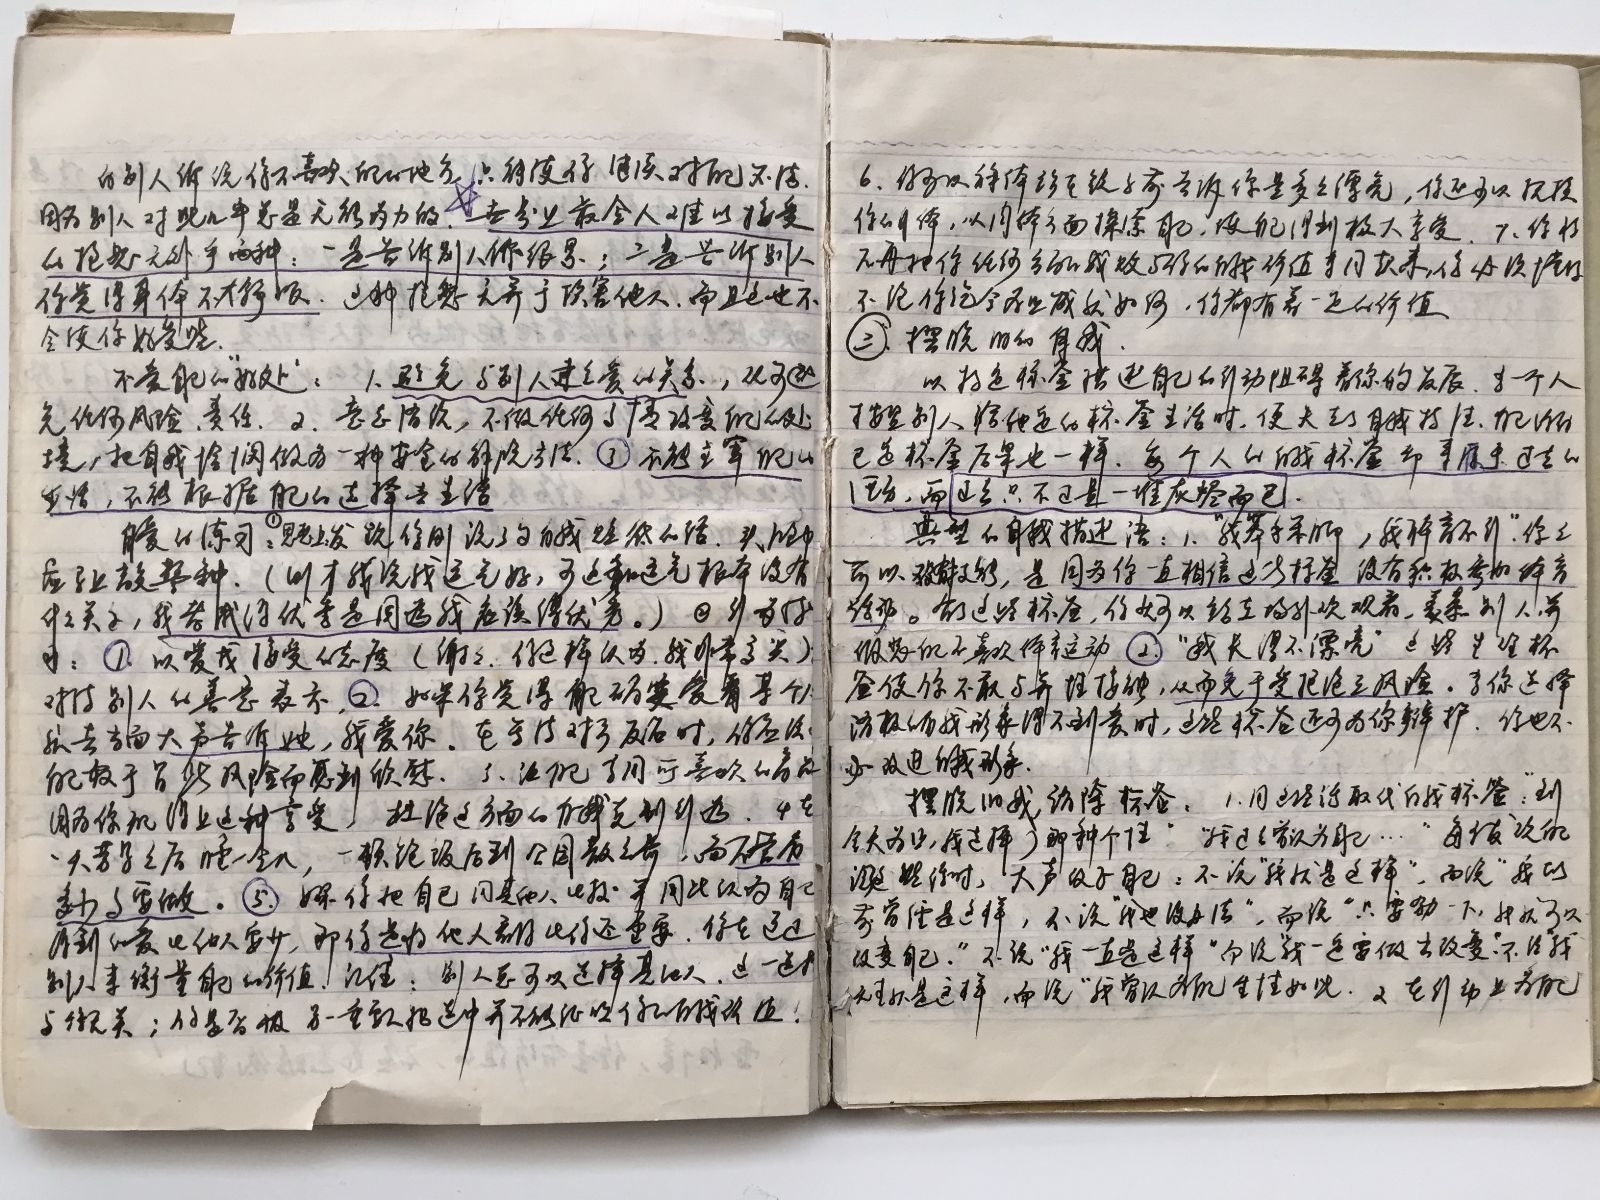 向别人诉说你不喜欢自己的地方,只能使你继续对自己不满.
因为别人对此几乎总是无能为力的. ☆ 世界上最令人难以接受
的抱怨无外乎两种:一是告诉别人你很累;二是告诉别人
你觉得身体不太舒服. 这种抱怨无异于损害他人.而且这也不
会使你好受些.
不爱自己的"好处": 1. 避免与别人建立爱的关系,从而避
免任何风险.责任. 2. 意志消沉,不做任何事情改变自己的处
境,把自我怜悯做为一种安全的解脱方法. ③ 不能主宰自己的
生活,不能根据自己的选择去生活
自爱的练习:①马上发现你刚说了句自我贬低的话.
(刚才我说我运气好,可这和运气根本没有
什么关系,我考成绩优秀是因为我应该得优秀。)
①. 以爱或接受的态度(谢谢.你这样认为.我非常高兴)
对待别人的善意表示, ②. 如果你觉得自己确实爱着某个人
就去当面大声告诉她,我爱你. 在等待对方反应时,你应该
自己敢于冒此风险而感到欣慰. 3. 让自己享用所喜欢的
因为你配得上这种享受, 杜绝这方面的自我克制行为. 4 在
一天劳累之后睡一会儿,一顿饱饭后到公园散之前.而不管有
多少事要做。 ⑤. 如果你把自己同其他人比较并因此认为自己
得到的爱比他人要少,那你是将他人看得比你还重要.你在通过
别人来衡量自己的价值.记住:别人总可以选择其他人.这一选择
与你无关;你是否被另一重要人物选中并不能证明你的自我价值!
6. 你可以裸体站在镜子前告诉你是多么漂亮,你还可以抚摸
你的身体,从肉体方面探索自己,使自己得到极大享受. 7. 你将
不再把你任何方面的成败与你的自我价值等同起来,你必须懂得
不论你迄今为止成就如何,你都有着一定的价值
㊂. 摆脱旧的自我.
以特定标签描述自己的行动阻碍着你的发展.当一个人
按照别人给他定的标签生活时,便失去了自我特性.自己给自
己定标签后果也一样.每个人的自我标签都来源于过去的
经历,而过去只不过是一堆灰烬而已.
典型的自我描述语: 1. "我笨手笨脚,我体育不行"你之
所以缺乏技能,是因为你一直相信这些标签没有积极参加体育
活动。有了这些标签,你就可以站在场外欢观看,羡慕别人并
假装自己不喜欢体育运动 ②. "我长得不漂亮"这些生理标
签使你不敢与异性接触,从而免于受拒绝之风险.当你选择
消极的自我形象得不到爱时,这些标签还可为你辩护.你也不
必改进自我形象.
摆脱旧我,消除标签. 1.用这些话取代自我标签:"到
今天为止,我选择了那种个性" "我过去曾认为自己…" 每次
大声纠正自己:不说"我就是这样",而说"我以
前曾经是这样,不说"我也没办法",而说"只要努力一下,我就可以
改变自己." 不说"我一直是这样"而说"我一定要做出改变"不说"我
天生就是这样,而说"我曾认为自己生性如此. 2 在行动上为自己